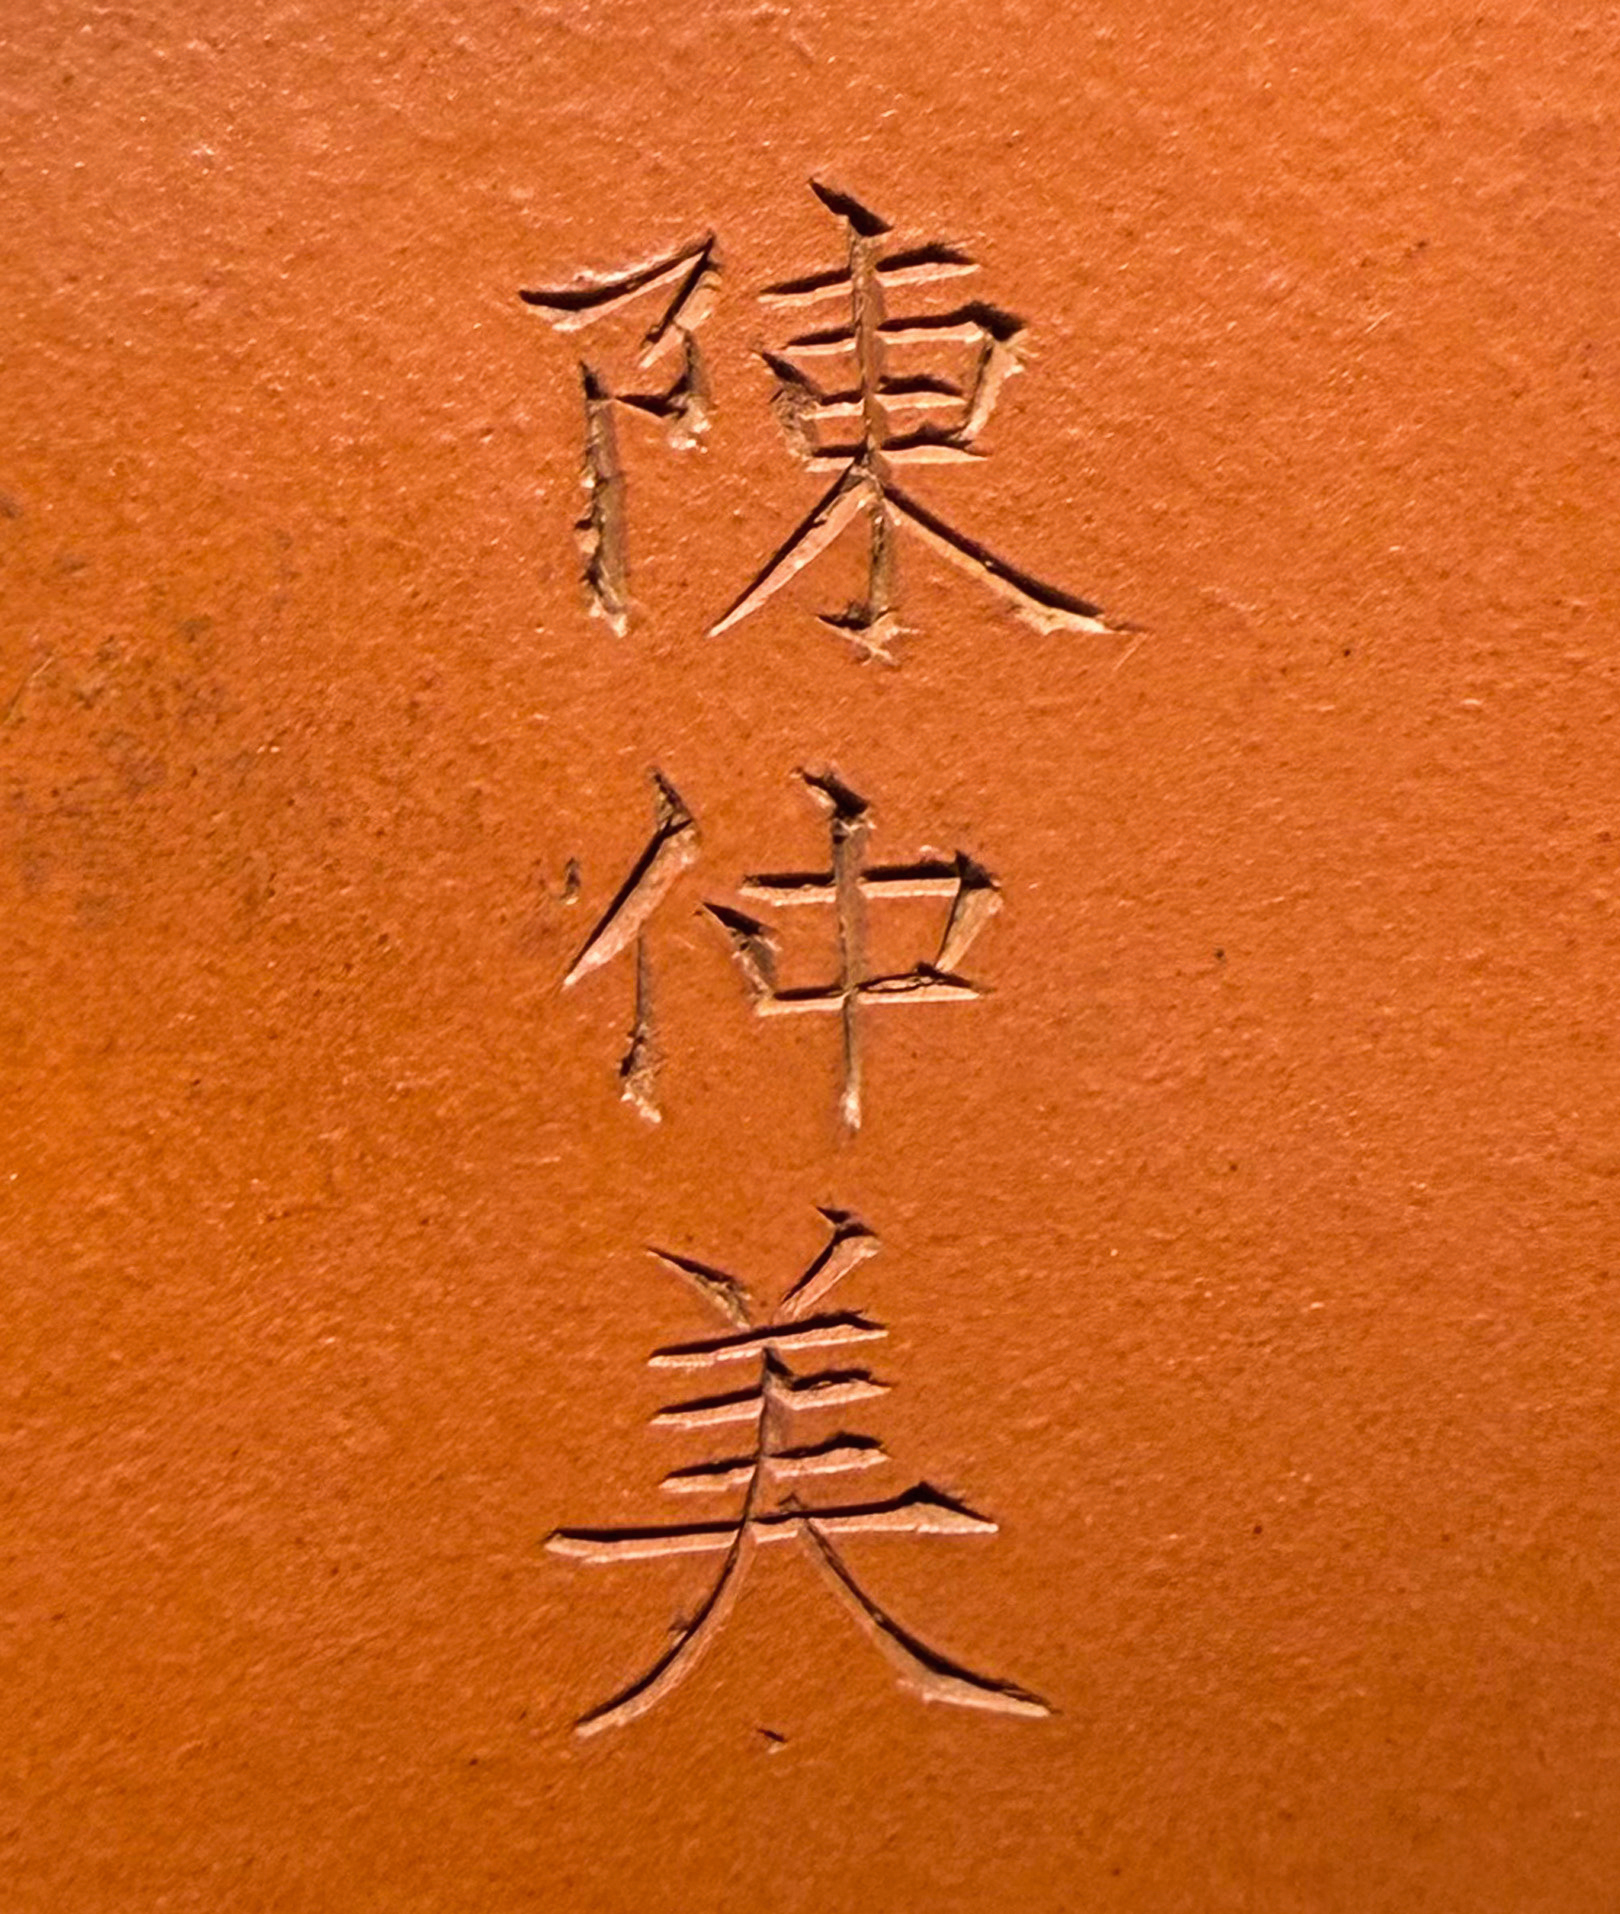 陳仲美